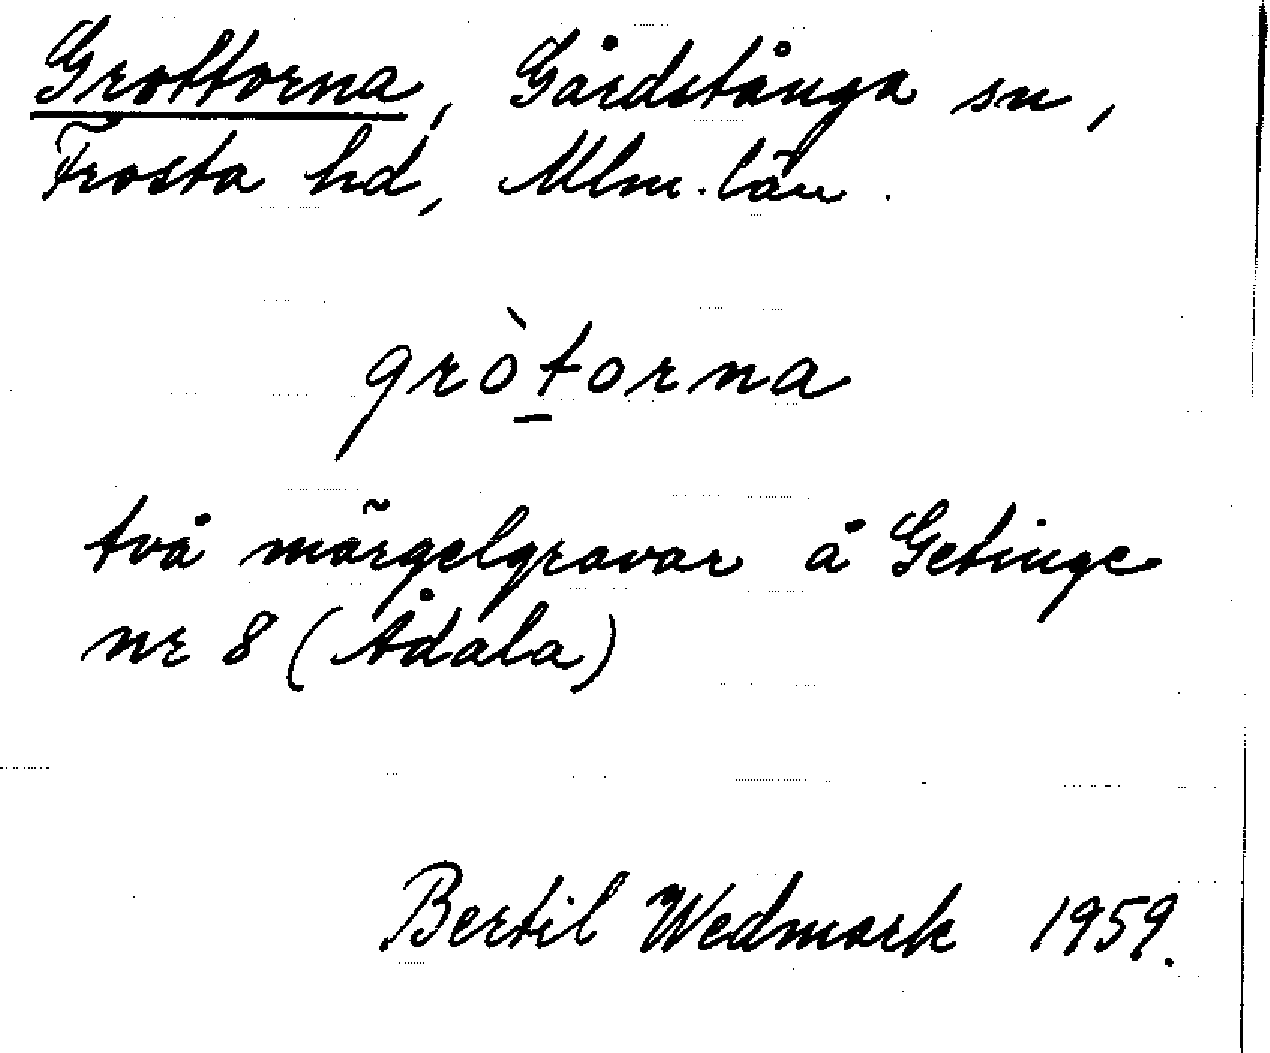 Grottorna, Gårdstånga sn,
Frosta hd, Mlm. län.
gròt̲orna
två märgelgravar å Getinge
nr 8 (Ådala)
Bertil Wedmark 1959.